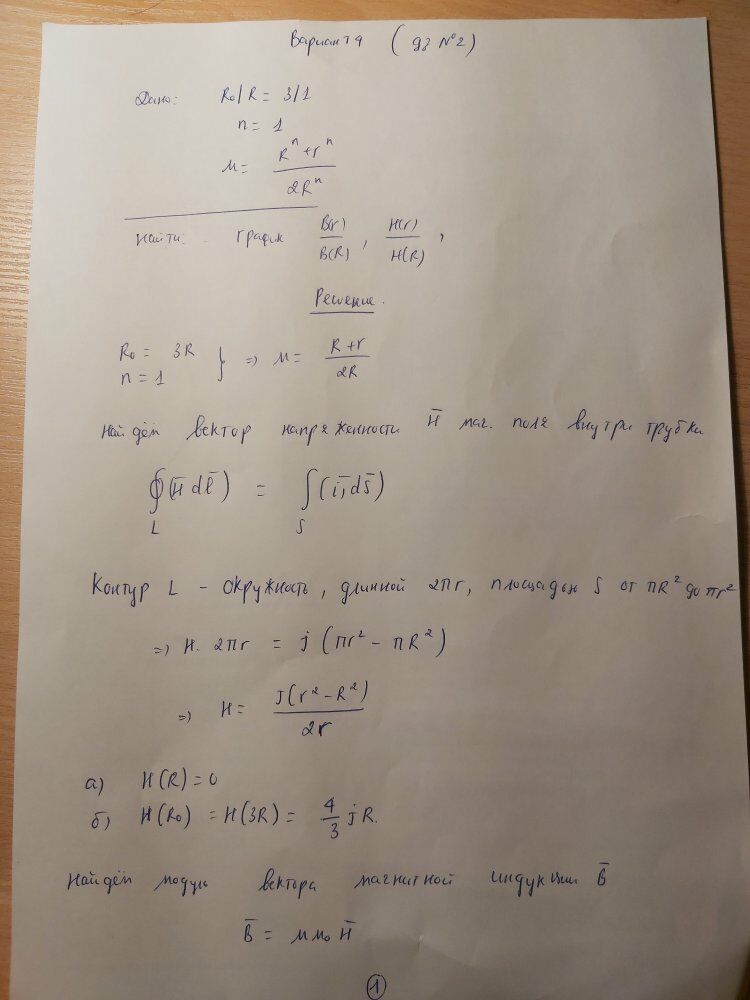 Вариант 9 (дз №2)
Дано: R₀/R = 3/1
n = 1
μ = (Rⁿ + rⁿ) / 2Rⁿ
Найти: график B(r)/B(R), H(r)/H(R),
Решение.
R₀ = 3R
n = 1 } => μ = (R + r) / 2R
Найдём вектор напряженности H̄ маг. поля внутри трубки
∮_L (H̄ dl̄) = ∫_S (j̄, ds̄)
Контур L - окружность, длинной 2πr, площадью S от πR² до πr²
=> H · 2πr = j (πr² - πR²)
=> H = j(r² - R²) / 2r
а) H(R) = 0
б) H(R₀) = H(3R) = 4/3 jR.
Найдём модуль вектора магнитной индукции B̄
B̄ = μμ₀ H̄
1